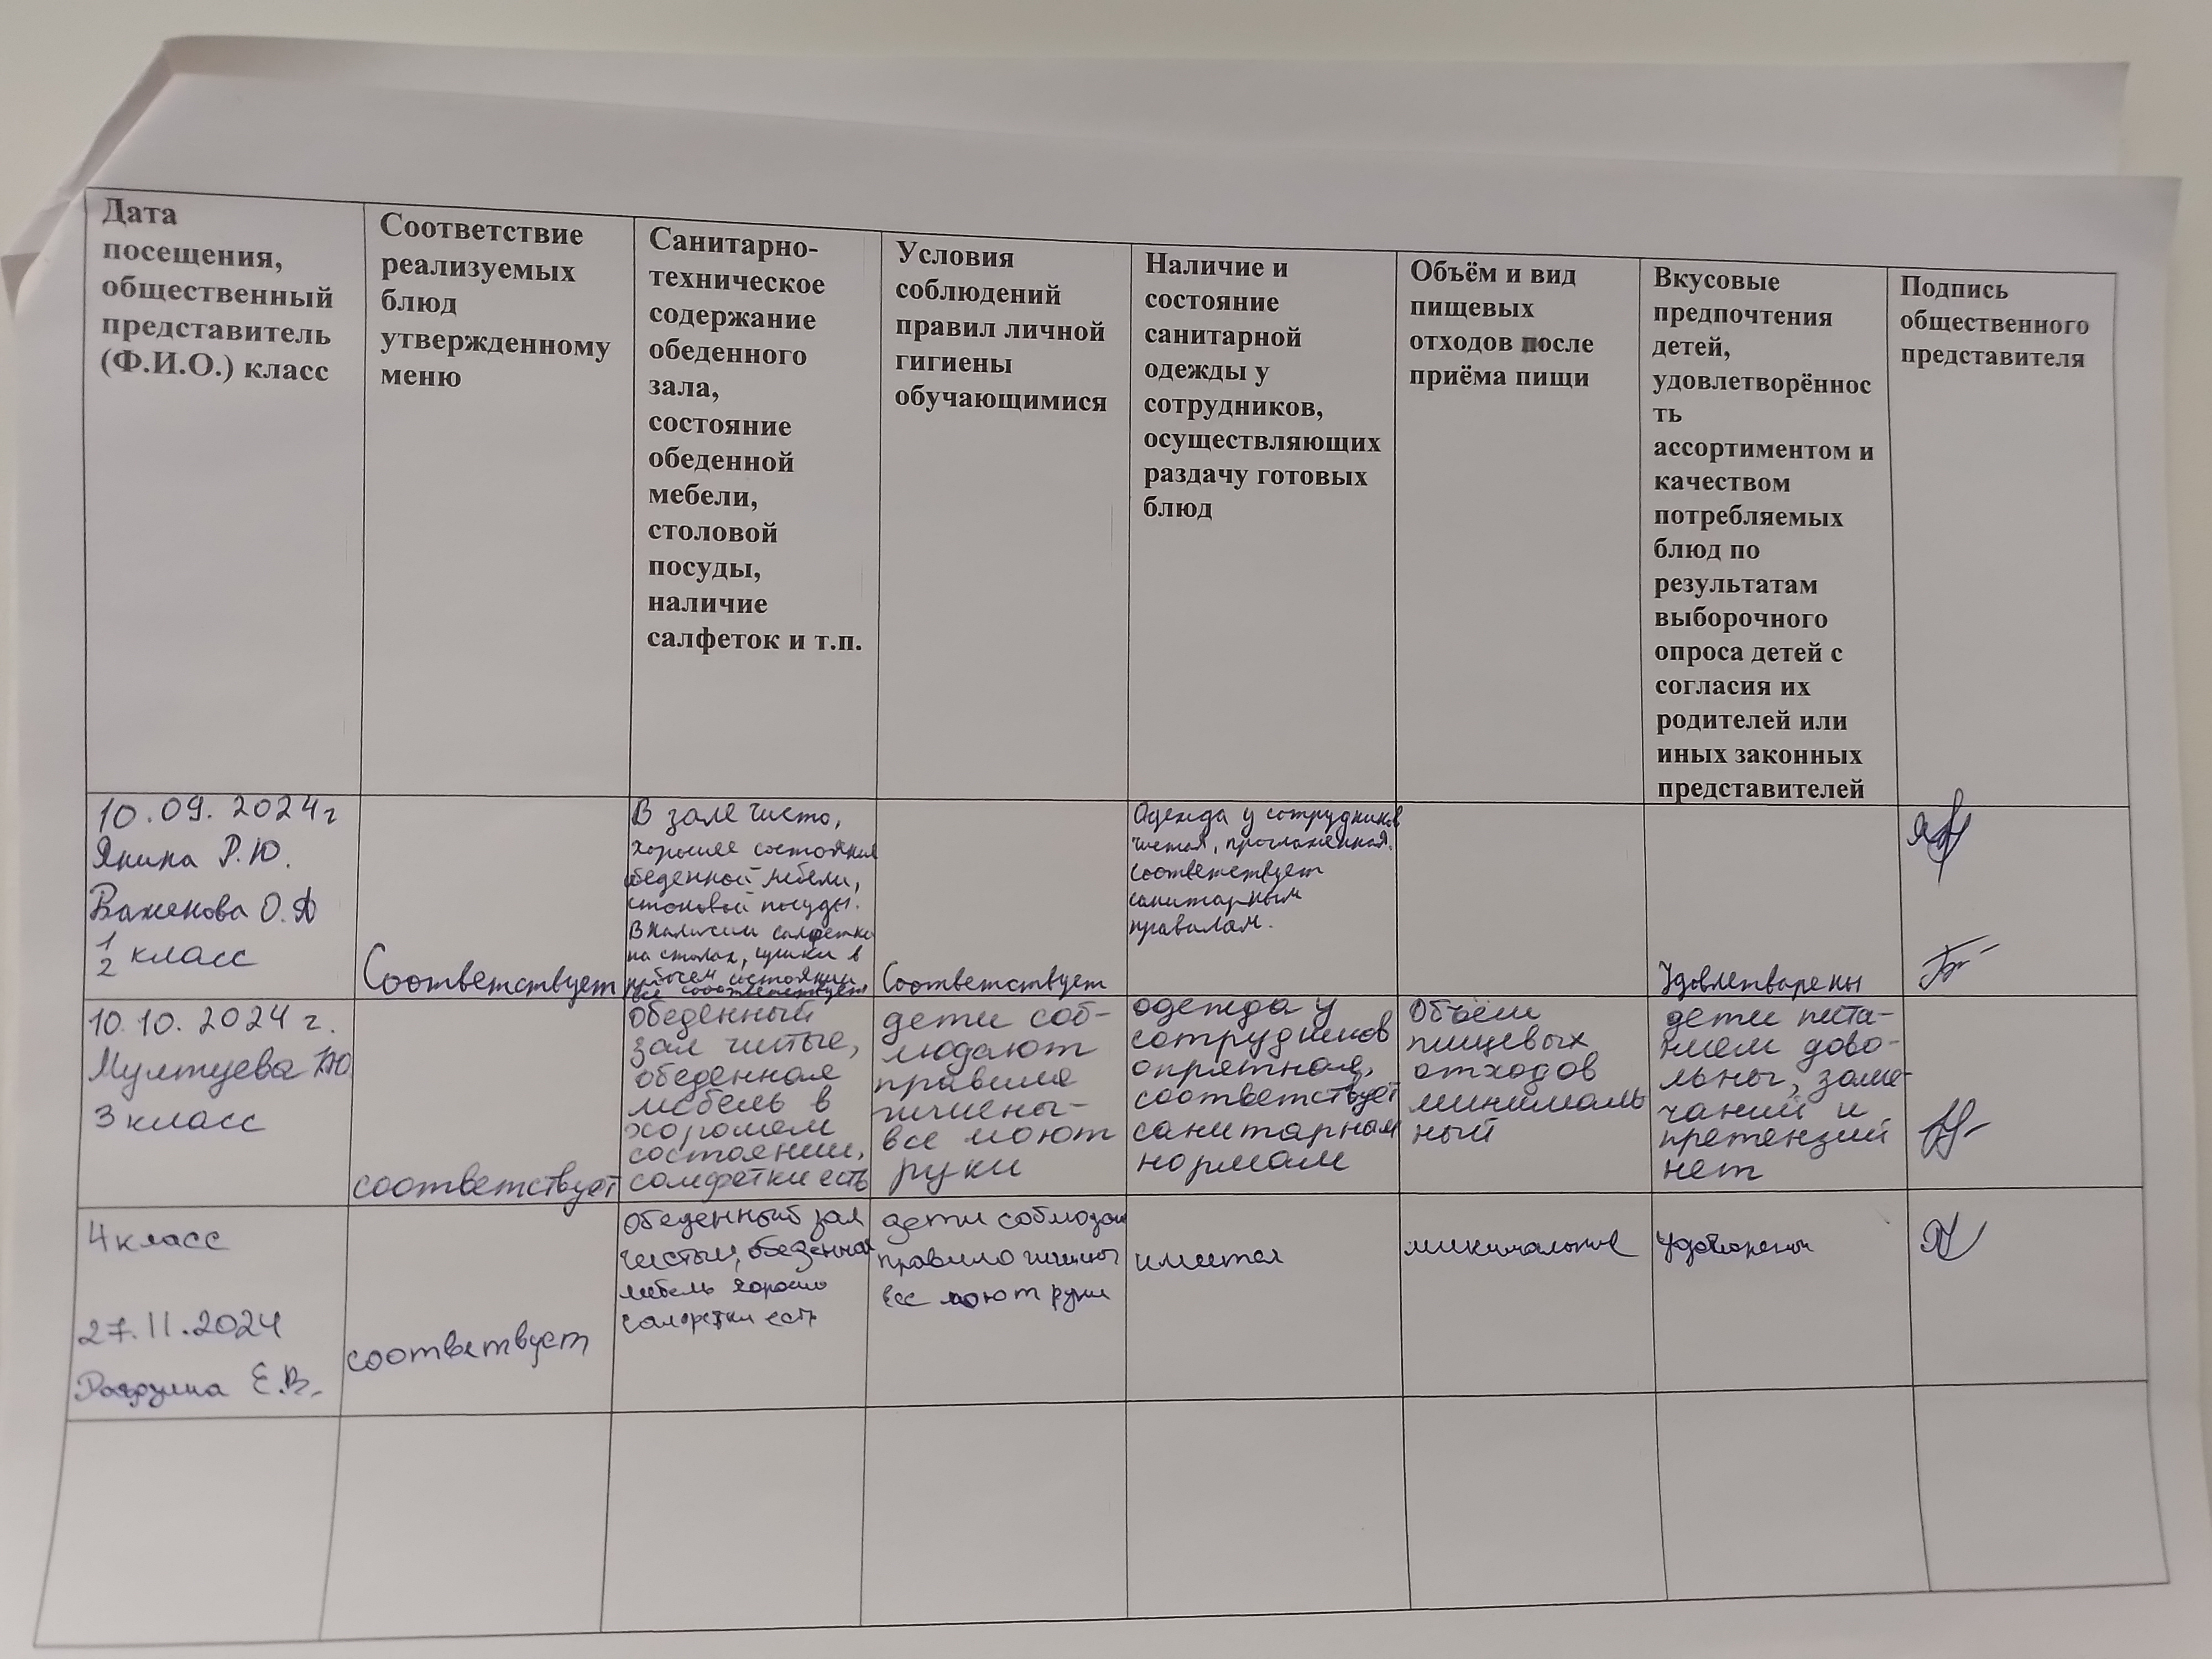 Дата
посещения,
общественный
представитель
(Ф.И.О.) класс
Соответствие
реализуемых
блюд
утвержденному
меню
Санитарно-
техническое
содержание
обеденного
зала,
состояние
обеденной
мебели,
столовой
посуды,
наличие
салфеток и т.п.
Условия
соблюдений
правил личной
гигиены
обучающимися
Наличие и
состояние
санитарной
одежды у
сотрудников,
осуществляющих
раздачу готовых
блюд
Объём и вид
пищевых
отходов после
приёма пищи
Вкусовые
предпочтения
детей,
удовлетворённос
ть
ассортиментом и
качеством
потребляемых
блюд по
результатам
выборочного
опроса детей с
согласия их
родителей или
иных законных
представителей
Подпись
общественного
представителя
10.09.2024г
Янина Р.Ю.
Важенова О.А
1/2 класс
Соответствует
В зале чисто,
хорошее состояние
обеденной мебели,
столовой посуды.
В наличии салфетки
на столах, в
рабочем состоянии
все соответствует
Соответствует
Одежда у сотрудников
чистая, проглаженная.
Соответствует
санитарным
правилам.
Удовлетварены
10.10.2024г.
3 класс
соответствует
обеденный
зал чистые,
обеденная
мебель в
хорошем
состоянии,
салфетки есть
дети соб-
людают
правила
гигиены-
все моют
руки
одежда у
сотрудников
опрятная,
соответствует
санитарным
нормам
Объём
пищевых
отходов
минималь
ный
дети пита-
нием дово-
льны, заме-
чаний и
претензий
нет
4 класс
27.11.2024
Е.В.
соответвует
обеденный зал
чистый, обеденная
мебель хорошо
салфетки есть
дети соблюдаю
правило гигиены
все моют руки
имеется
минимальное